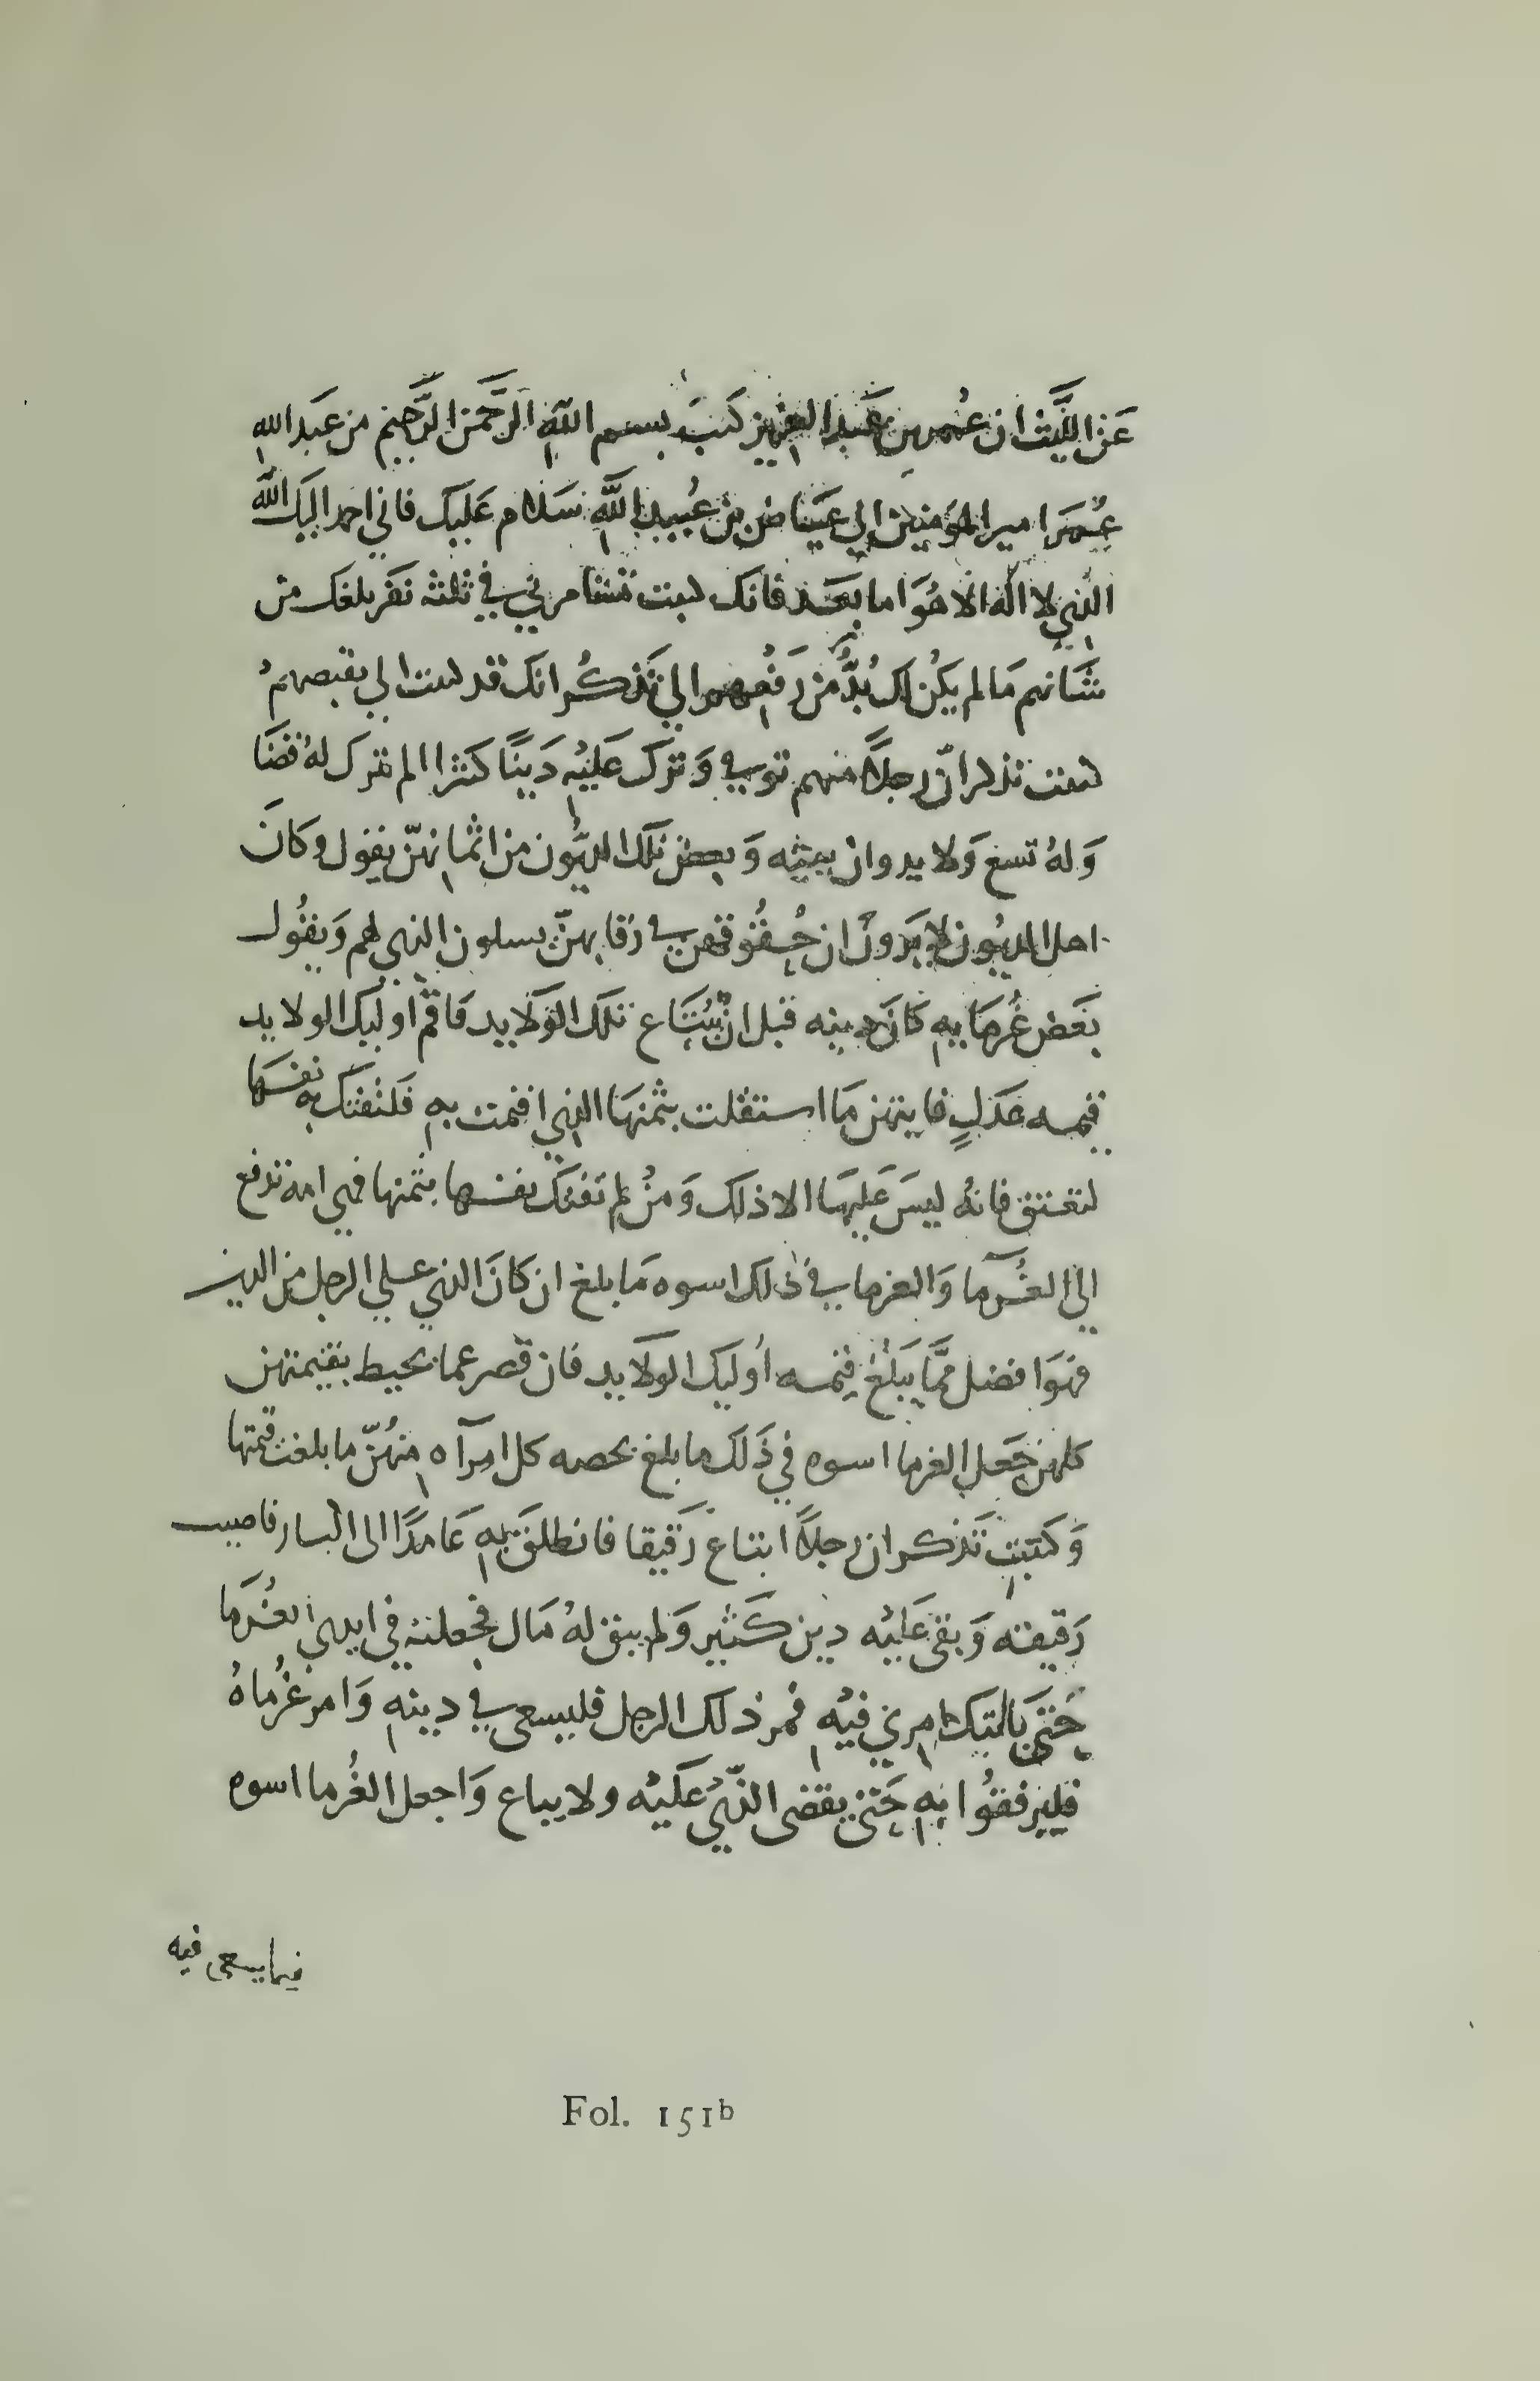 عَن اللَّيْث ان عُمر بن عَبد العزيز كتبَ بسم اللّهِ الرَّحمَن الرَّحِيم من عَبد اللهِ
عُمَر امير المؤمنين الي عيَاض بن عُبيد اللَّهِ سَلام عَليك فاني احمد اليك اللّه
الذي لا اله الا هُوَ اما بعَد فانك كتبت تستامرني في ثلثه نَفَر بلغك من
شَانهم مَا لم يكُن لك بُدٌّ مِن رَفعهم الي تَذكُر انك قد كتبت الي بقصصهمُ
كتبت تذكر انّ رجلاً منهم توفي وَترك عَليْهِ دَينًا كثيرا لم يترك لهُ قضَا
وَلهُ تسع وَلايد وان بعيثه وَبعض تلك الديُون من اثمانهنّ يقول وكانَ
اهل الديُون لا يَرونَ ان حُقُوقهم في رقابهنّ يسلون الذي لهم وَيقُول
بَعَض غُرمَايهِ كانَ دينه قبل ان يُبتَاع تلك الوَلايد فاقم اوليك الولايد
قيمه عَدلٍ فايتهن مَا استقلت بثمنهَا الذي اقيمت بهِ فلتفتك به نفسَها
لتعتق فانهُ ليسَ عَليهَا الا ذلك وَمنْ لم تفتك نفسها بثمنها فهي امه تدفع
الى الغُرمآ وَالغرما في ذلك اسوه مَا بلغ ان كانَ الذي علي الرجل من الدين
فهوَ افضل ممَّا يَبلُغ قيمه اُوليك الولايد فان قصر عما يحيط بقيمتهن
كلهن جَعَل الغرما اسوه في ذَلك ما بلغ بحصه كل امرآه منهُنّ ما بلغت قيمتها
وَكتبتِ تَذكر ان رجلاً ابتاع رَقيقا فانطلقَ بهِ عَامدًا الى اليسار فاصيب
رَقيقه وَبقى عَليْه دين كَثير وَلم يبق لهُ مَال فجعلته في ايدي الغُرمَا
حَتىَ يَاتيك امري فيْهِ فمر ذلك الرجل فليسعى في دينهِ وَامر غُرماهُ
فليرفقُوا بهِ حَتى يقضى الذّيُ عَليْه ولا يباع وَاجعل الغُرما اسوه
فيما يسعى فيه
Fol. 151b